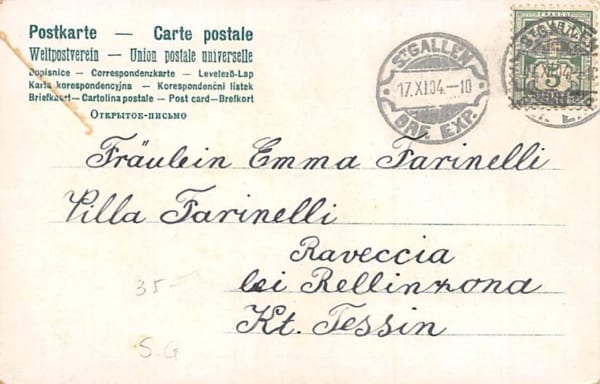 Postkarte — Carte postale
Weltpostverein — Union postale universelle
Dopisnice — Correspondenzkarte — Levelező-Lap
Karta korespondencyjna — Korespondenční lístek
Briefkaart — Cartolina postale — Post card — Brefkort
Открытое-письмо
ST GALLEN
17.XI.04.—10
BRF. EXP.
FRANCO
5
ST GALLEN
XI.04
Fräulein Emma Farinelli
Villa Farinelli
Raveccia
bei Bellinzona
Kt. Tessin
35-
S.G